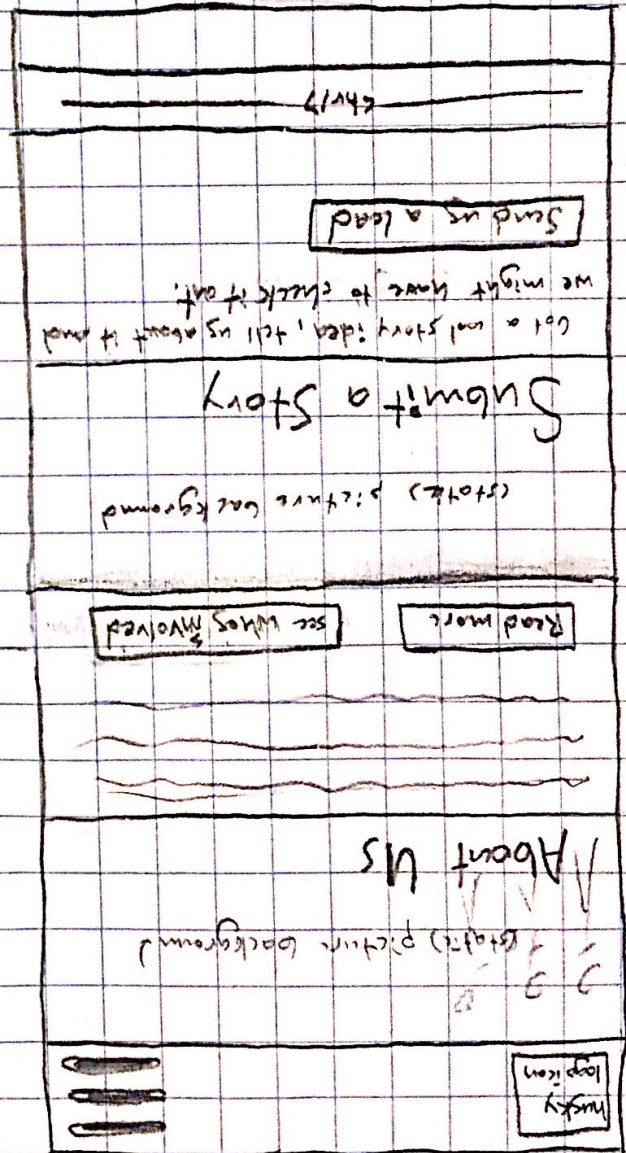 husky
logo icon
(static) picture background
About Us
Read more
see who's involved
(static) picture background
Submit a Story
Got a cool story idea, tell us about it and
we might have to check it out.
Send us a lead